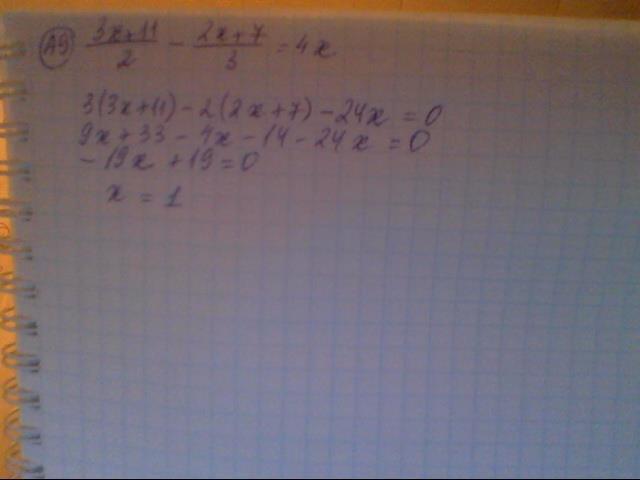 A9 (3x+11)/2 - (2x+7)/3 = 4x
3(3x+11) - 2(2x+7) - 24x = 0
9x + 33 - 4x - 14 - 24x = 0
- 19x + 19 = 0
x = 1